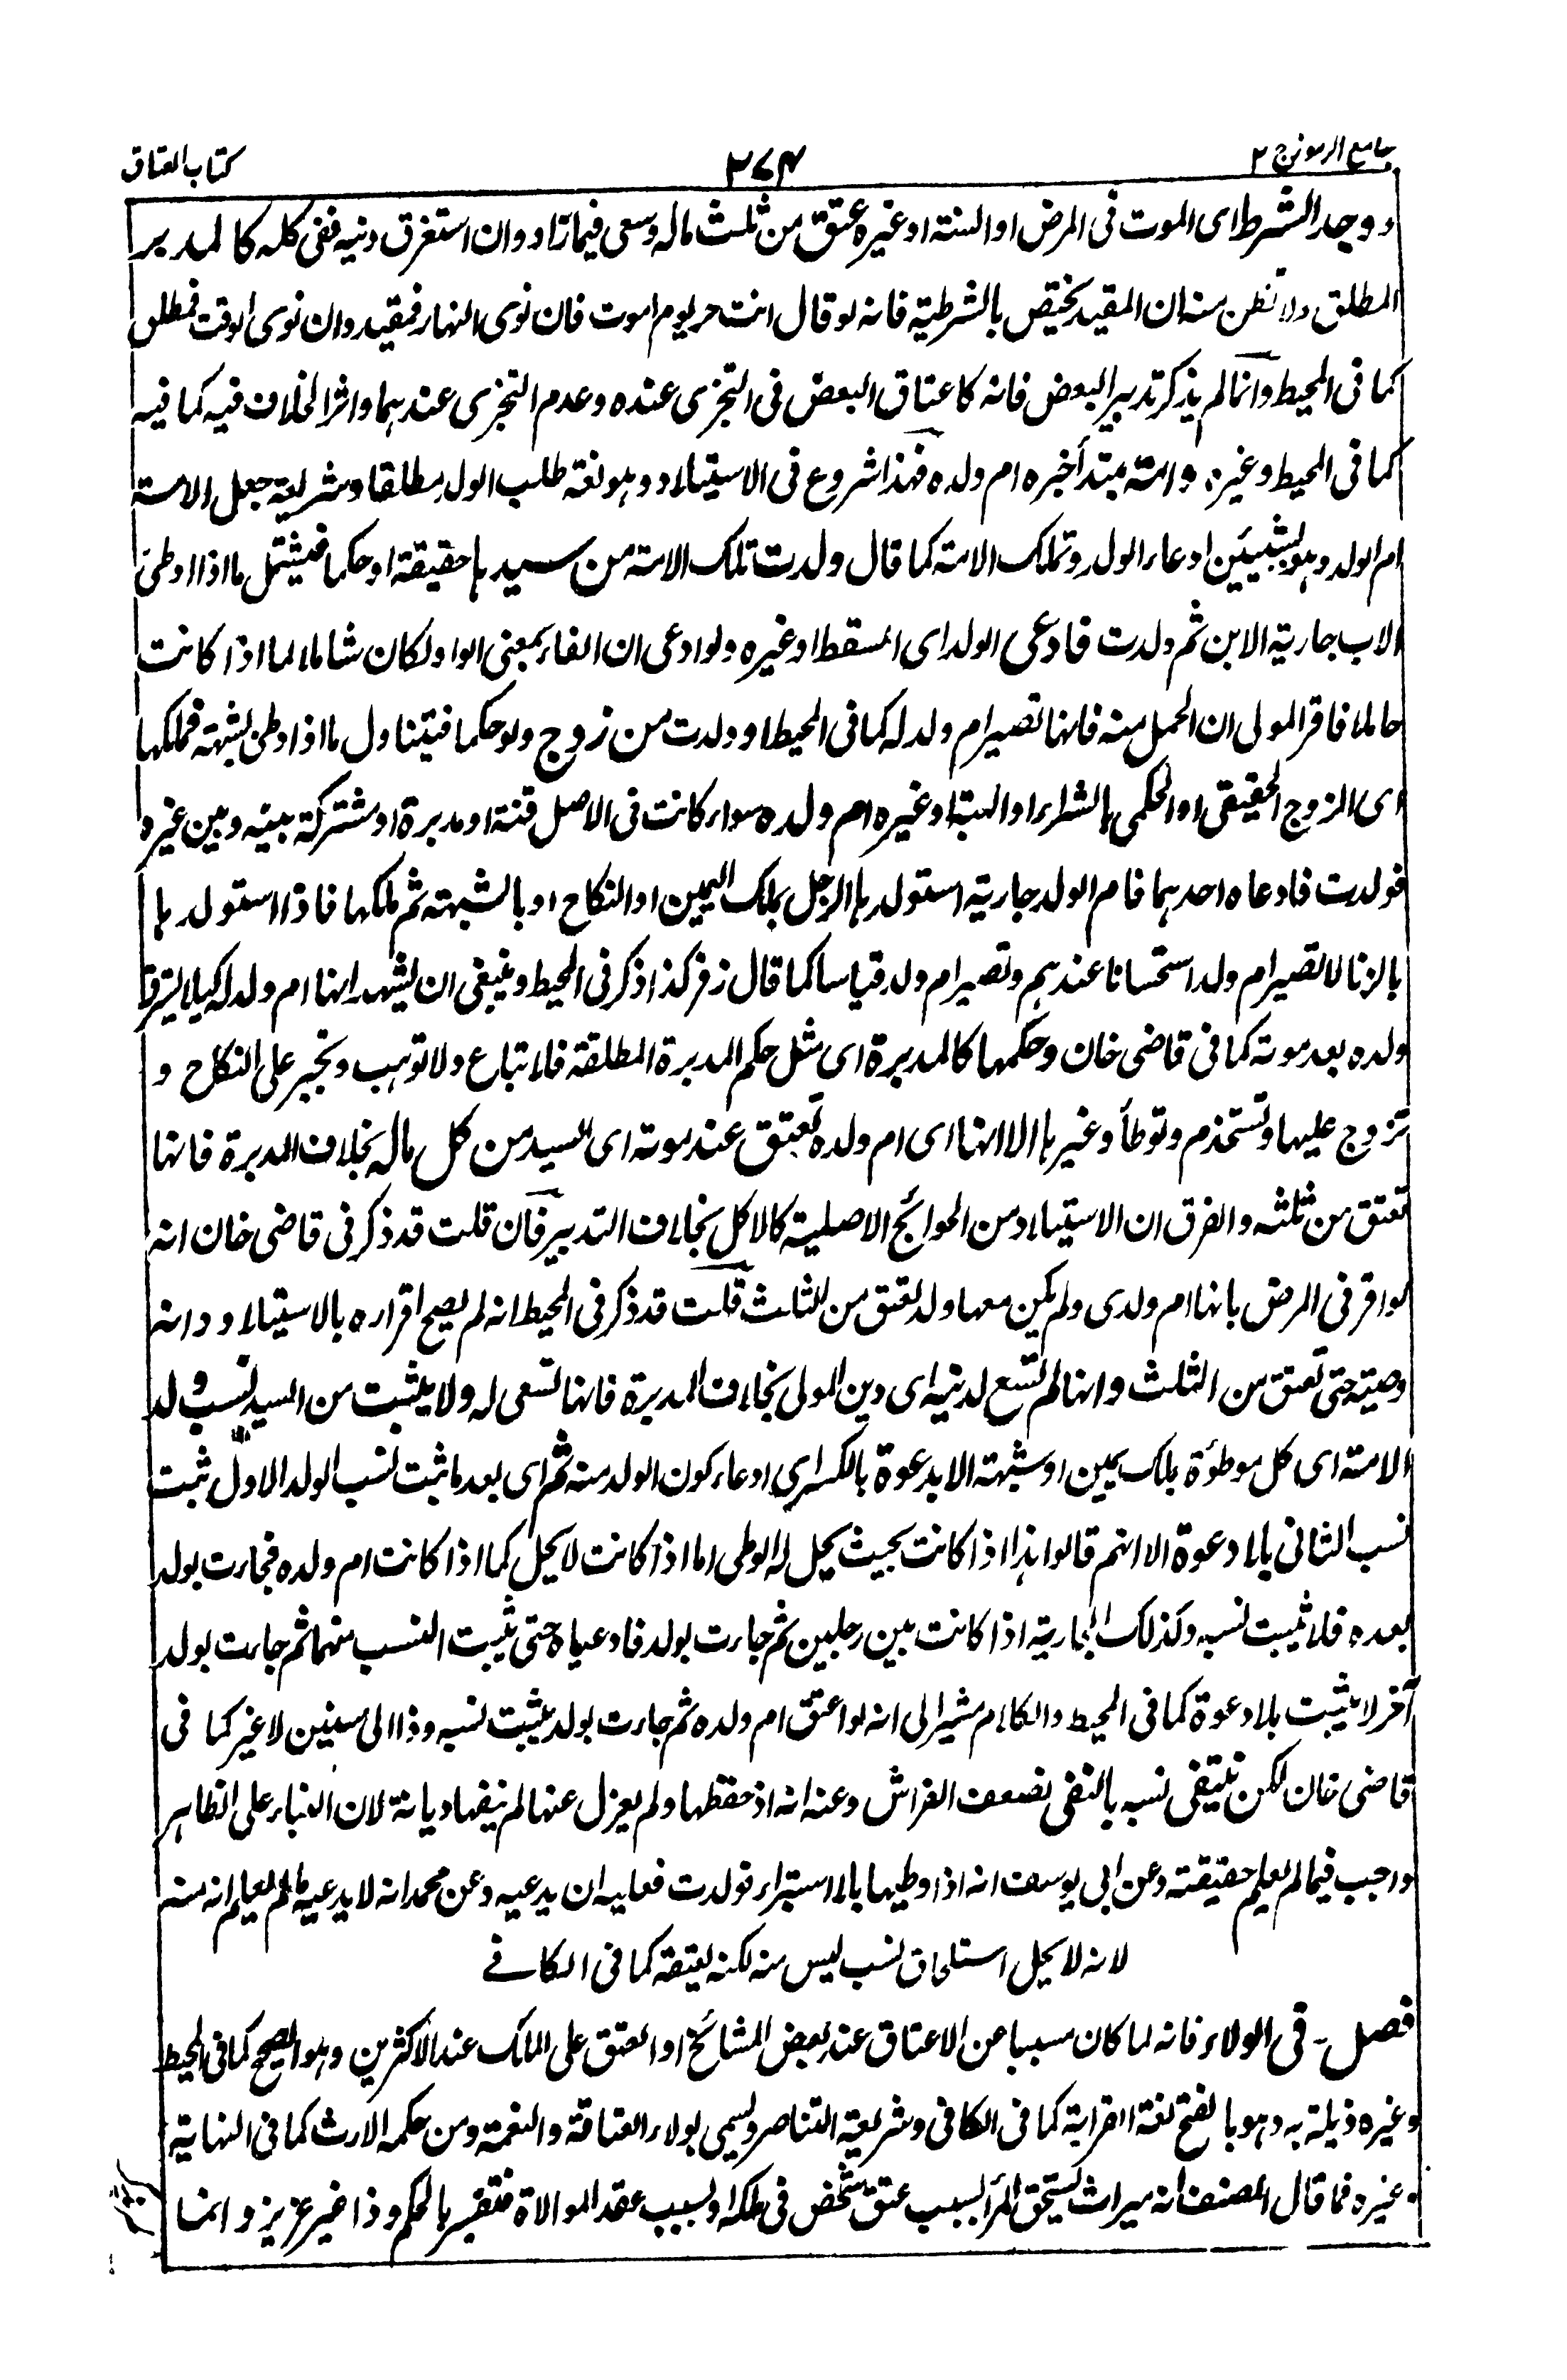 جامع الرموز ج ٢
٣٧٤
كتاب العتاق
و وجد الشرط اى الموت فى المرض او السنة او غيره عتق من ثلث ماله وسعى فيما زاد وان استغرق دينه ففى كله كالمدبر
المطلق ولا تظن منه ان المقيد يختص بالشرطية فانه لو قال انت حر يوم اموت فان نوى النهار فمقيد وان نوى الوقت فمطلق
كما فى المحيط وانما لم يذكر تدبير البعض فانه كاعتاق البعض فى التجزى عنده وعدم التجزى عندهما واثر الخلاف فيه كما فيه
كما فى المحيط وغيره وامة مبتدأ خبره ام ولده فهذا شروع فى الاستيلاد وهو لغة طلب الولد مطلقا وشريعة جعل الامة
ام الولد وهو بشيئين ادعاء الولد وتملك الامة كما قال ولدت تلك الامة من سيدها حقيقة او حكما فيشتمل ما اذا وطئ
الاب جارية الابن ثم ولدت فادعى الولد اى المسقط او غيره ولو ادعى ان الفاء بمعنى الواو لكان شاملا لما اذا كانت
حاملا فاقر المولى ان الحمل منه فانها تصير ام ولد له كما فى المحيط او ولدت من زوج ولو حكما فيتناول ما اذا وطئ بشبهة فملكها
اى الزوج الحقيقى او الحكمى بالشراء او الهبة او غيره ام ولده سواء كانت فى الاصل قنة او مدبرة او مشتركة بينه وبين غيره
فولدت فادعاه احدهما فام الولد جارية استولدها الرجل بملك اليمين او النكاح او بالشبهة ثم ملكها فاذا استولدها
بالزنا لا تصير ام ولد استحسانا عندهم وتصير ام ولد قياسا كما قال زفر كذا ذكر فى المحيط وينبغى ان يشهد انها ام ولد له كيلا يسترق
ولده بعد موته كما فى قاضى خان وحكمها كالمدبرة اى مثل حكم المدبرة المطلقة فلا تباع ولا توهب وتجبر على النكاح و
تزوج عليها وتستخدم وتوطأ وغيرها الا انها اى ام ولده تعتق عند موته اى السيد من كل ماله بخلاف المدبرة فانها
تعتق من ثلثه والفرق ان الاستيلاد من الحوائج الاصلية كالاكل بخلاف التدبير فان قلت قد ذكر فى قاضى خان انه
لو اقر فى المرض بانها ام ولدى ولم يكن معها ولد تعتق من الثلث قلت قد ذكر فى المحيط انه لم يصح اقراره بالاستيلاد وانه
وصية حتى تعتق من الثلث وانها لم تسع لدينه اى دين المولى بخلاف المدبرة فانها تسعى له ولا يثبت من السيد نسب ولد
الامة اى كل موطوءة بملك يمين او شبهة الا بدعوة بالكسر اى ادعاء كون الولد منه ثم اى بعد ما ثبت نسب الولد الاول ثبت
نسب الثانى بلا دعوة الا انهم قالوا هذا اذا كانت بحيث يحل له الوطى اما اذا كانت لا يحل كما اذا كانت ام ولده فجاءت بولد
بعده فلا يثبت نسبه وكذلك الجارية اذا كانت بين رجلين ثم جاءت بولد فادعياه حتى يثبت النسب منهما ثم جاءت بولد
آخر لا يثبت بلا دعوة كما فى المحيط والكلام مشير الى انه لو اعتق ام ولده ثم جاءت بولد يثبت نسبه وذا الى سنين لا غير كما فى
قاضى خان لكن ينتفى نسبه بالنفى لضعف الفراش وعنه انه اذ حفظها ولم يعزل عنها لم ينفها ديانة لان البناء على الظاهر
واجب فيما لم يعلم حقيقته وعن ابى يوسف انه اذا وطيها بلا استبراء فولدت فعليه ان يدعيه وعن محمد انه لا يدعيه ما لم يعلم انه منه
لانه لا يحل استلحاق نسب ليس منه لكنه يعتقه كما فى الكافى
فصل - فى الولاء فانه لما كان مسببا عن الاعتاق عند بعض المشائخ او العتق على الملك عند الاكثرين وهو الصحيح كما فى المحيط
وغيره ذيله به وهو بالفتح لغة القرابة كما فى الكافى وشريعة التناصر ويسمى بولاء العتاقة والنعمة ومن حكمه الارث كما فى النهاية
وغيره فما قال المصنف انه ميراث يستحق المرأ بسبب عتق شخص فى ملكه او بسبب عقد الموالاة فتفسير بالحكم وذا غير عزيز وانما